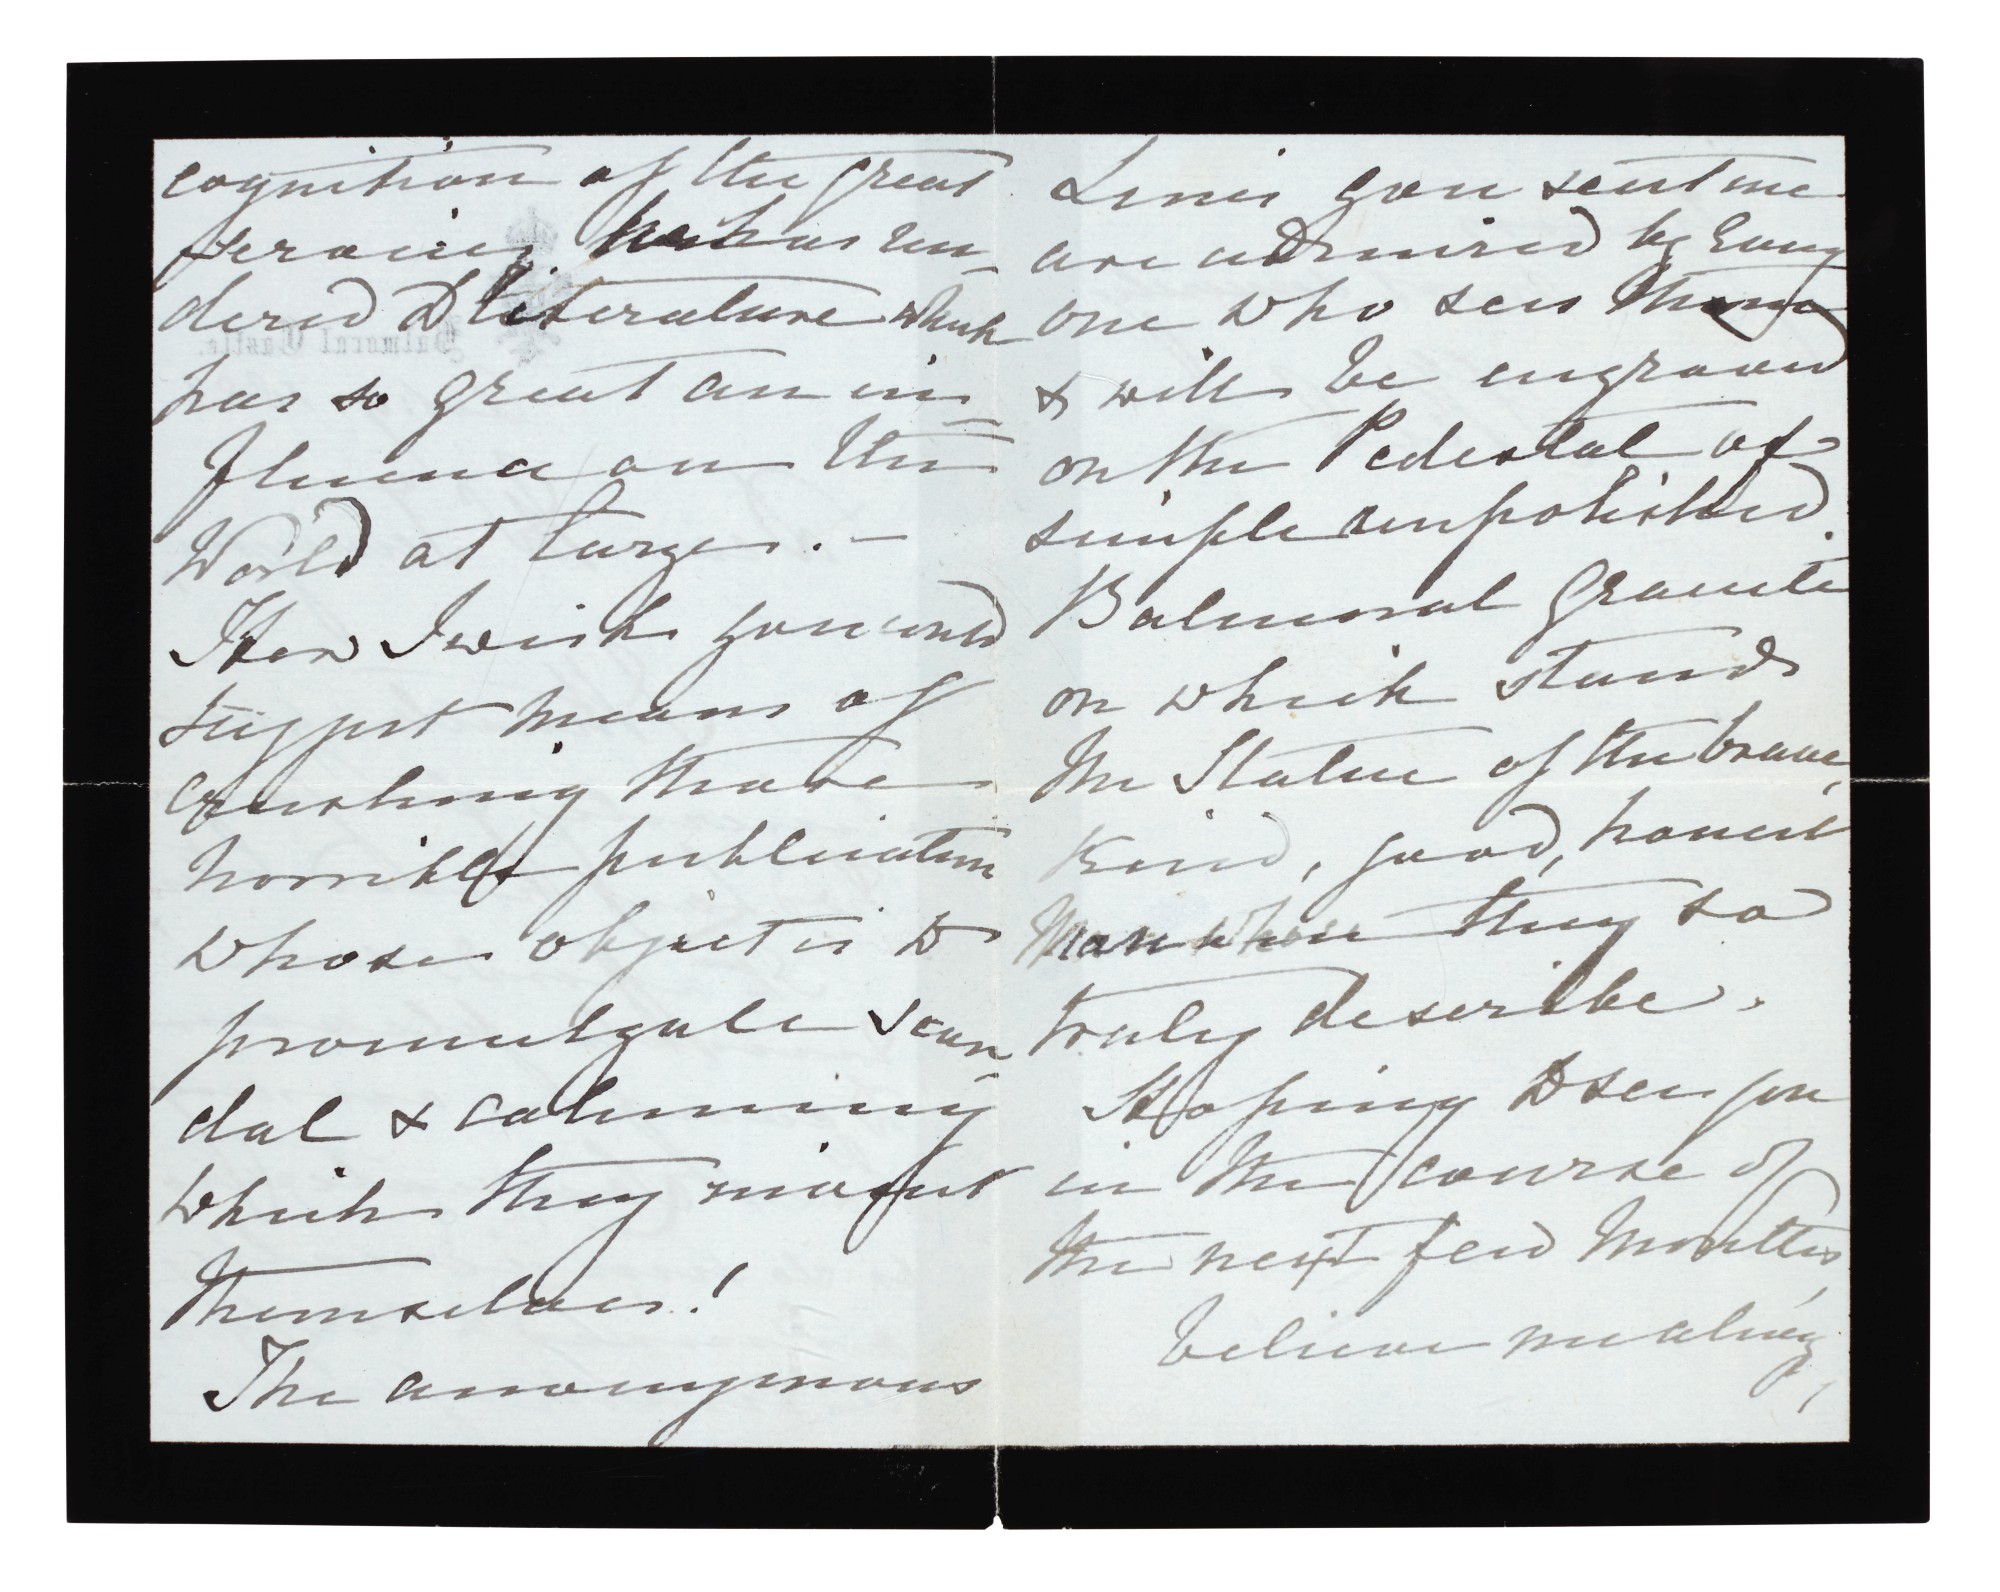 cognition of the great
services he has ren_
dered to literature which
has so great an in_
fluence on the
World at large. —
How I wish you could
suggest means of
crushing those
horrible publications
whose object is to
promulgate scan_
dal & calumny
which they invent
themselves!
The anonymous
Lines you sent me
are admired by every
one who sees them
& will be engraved
on the Pedestal of
simple unpolished
Balmoral Granite
on which stands
the Statue of the brave,
Kind, good, honest
Man whom they so
truly describe.
Hoping to see you
in the course of
the next few Months,
believe me always,
Balmoral Castle.